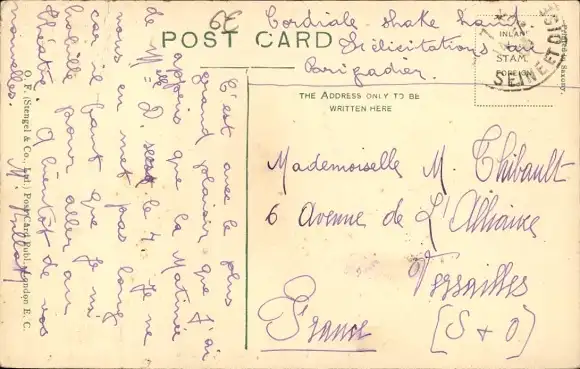 6E
Cordiale shake hand.
Félicitations au
Brigadier.
POST CARD
INLAND
STAM.
FOREIGN
SEINE ET OISE
Printed in Saxony.
THE ADDRESS ONLY TO BE
WRITTEN HERE
C'est avec le plus
grand plaisir que j'ai
appris que la Matinée
de Mlle D. serait le 4. Je ne
vous en met pas long
car il faut que je m'
habille pour aller au
théâtre. A bientôt de vos
nouvelles.
M.
O. F. (Stengel & Co., Ltd.) Post Card Publ. London E. C.
Mademoiselle M. Thibault
6 Avenue de L'Alliance
Versailles
(S & O)
France